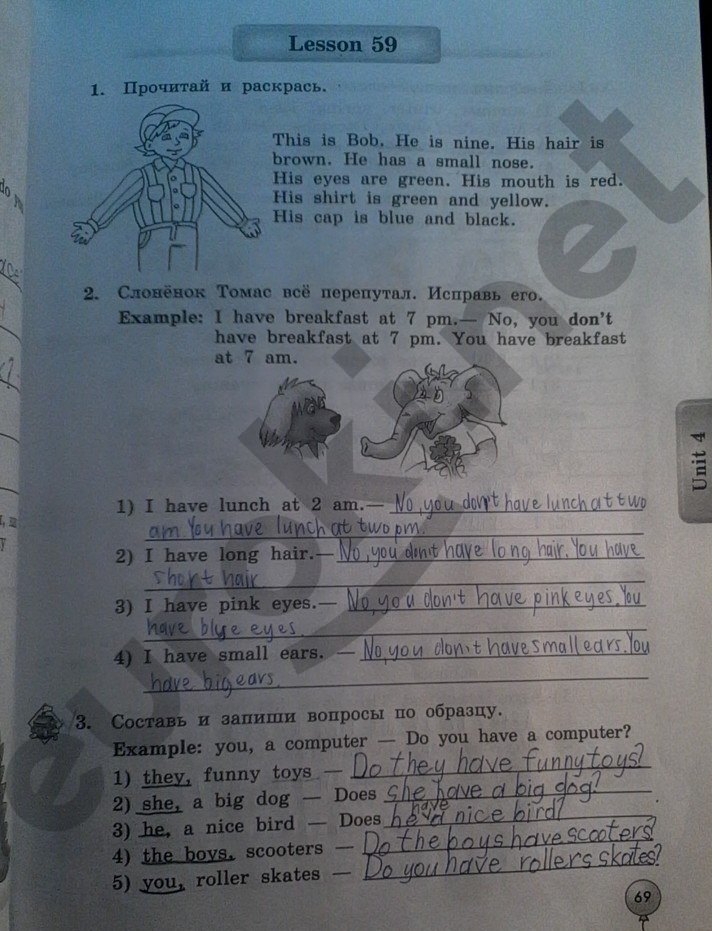 Lesson 59
1. Прочитай и раскрась.
This is Bob. He is nine. His hair is
brown. He has a small nose.
His eyes are green. His mouth is red.
His shirt is green and yellow.
His cap is blue and black.
2. Слонёнок Томас всё перепутал. Исправь его.
Example: I have breakfast at 7 pm.— No, you don't
have breakfast at 7 pm. You have breakfast
at 7 am.
1) I have lunch at 2 am.— No, you don't have lunch at two
am. You have lunch at two pm.
2) I have long hair.— No, you don't have long hair. You have
short hair
3) I have pink eyes.— No, you don't have pink eyes. You
have blue eyes.
4) I have small ears. — No, you don't have small ears. You
have big ears.
Unit 4
3. Составь и запиши вопросы по образцу.
Example: you, a computer — Do you have a computer?
1) they, funny toys — Do they have funny toys?
2) she, a big dog — Does she have a big dog?
3) he, a nice bird — Does he have a nice bird?
4) the boys, scooters — Do the boys have scooters?
5) you, roller skates — Do you have rollers skates?
69
euroki.net